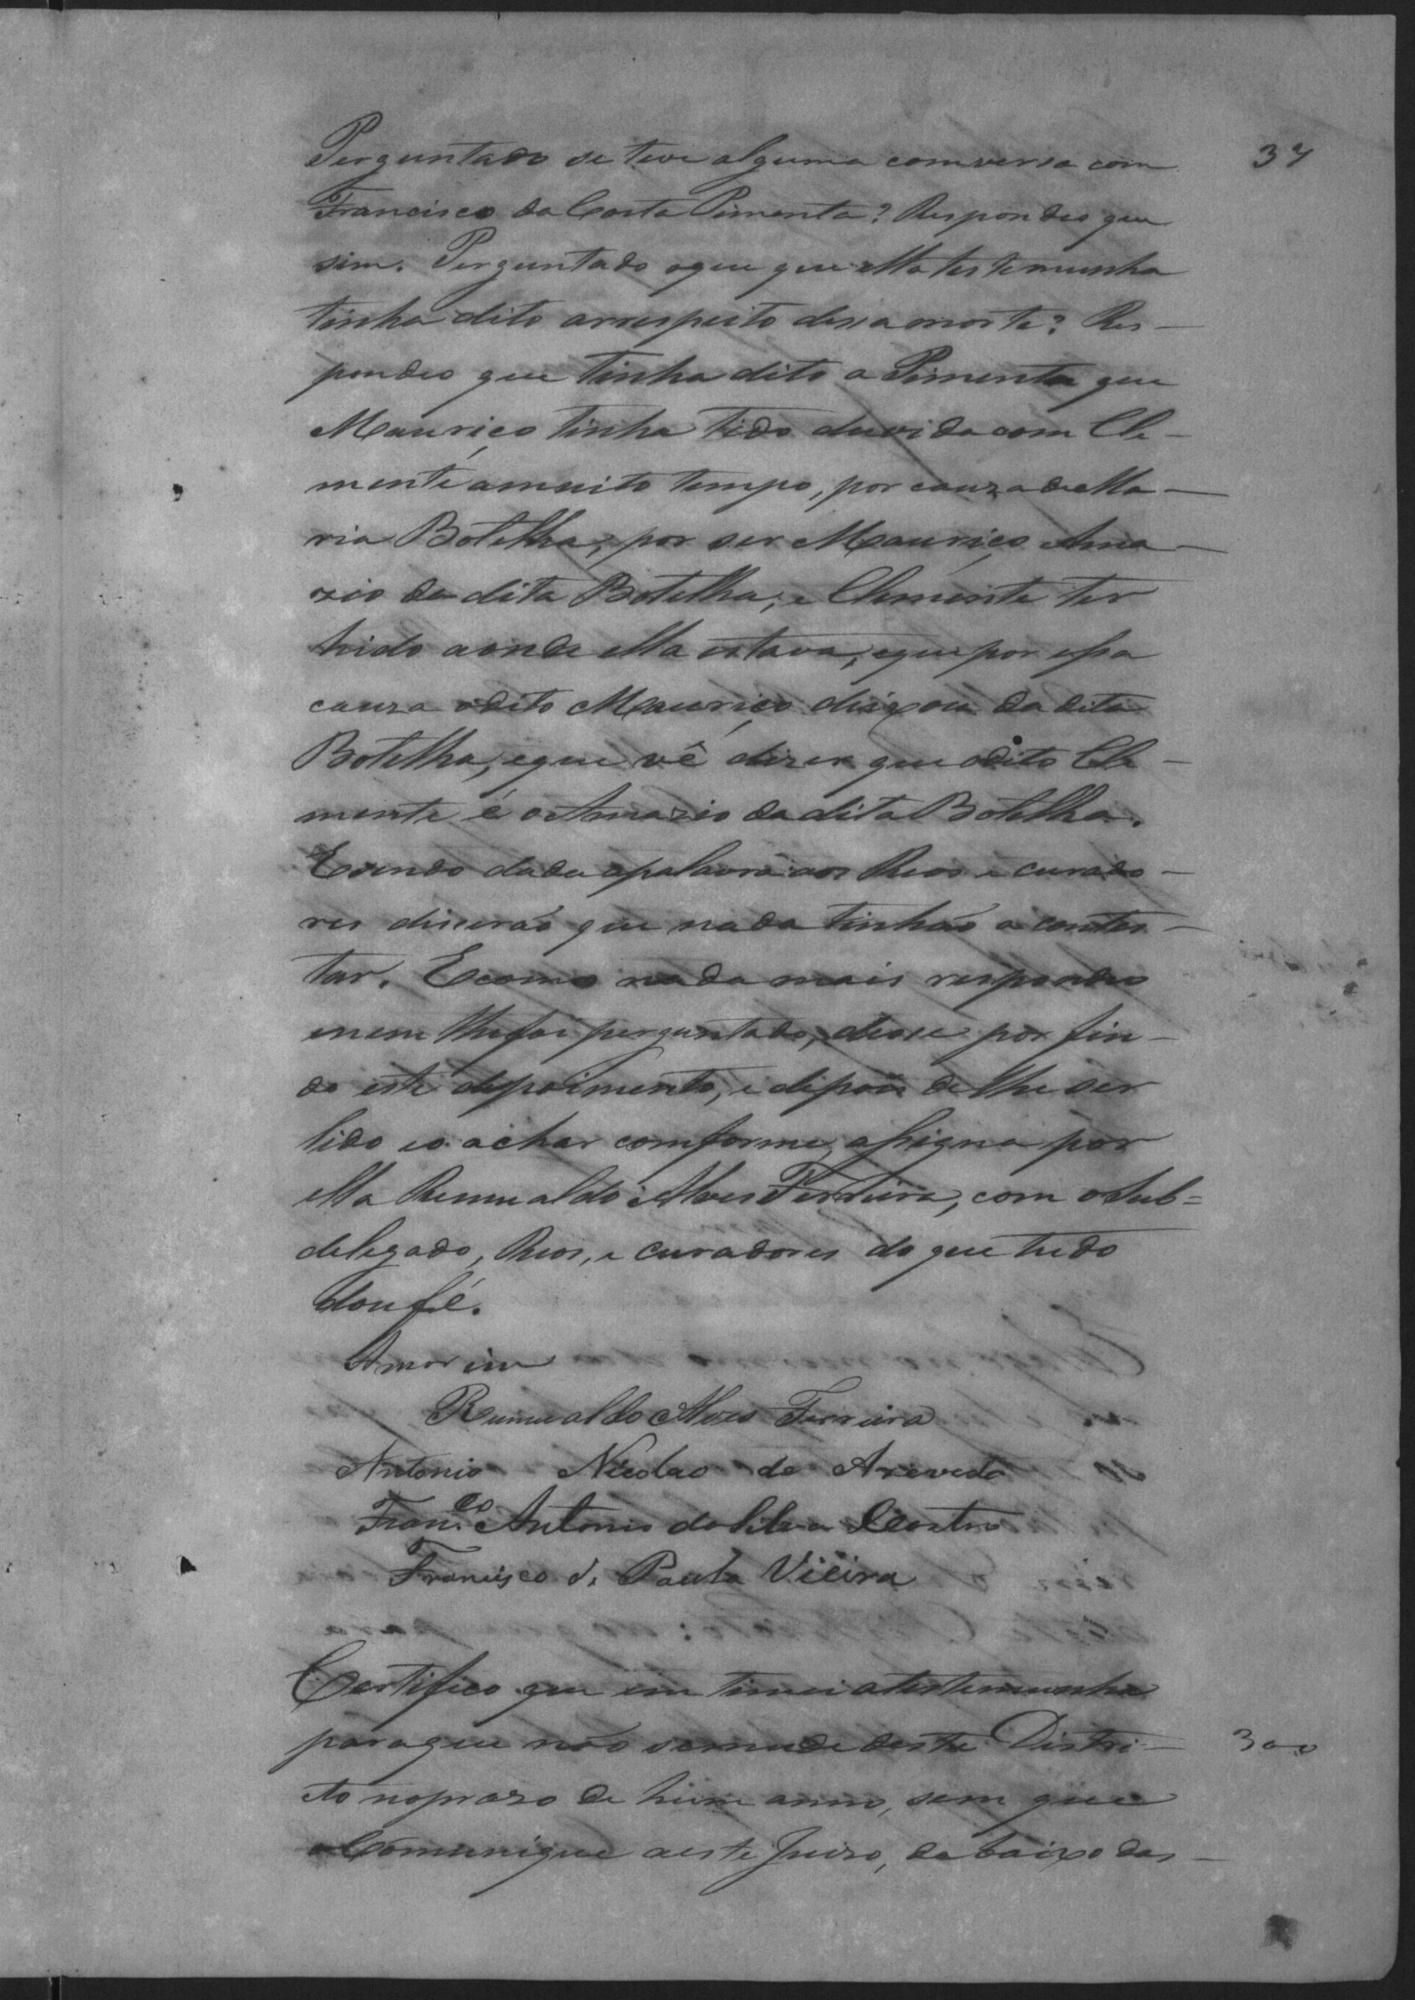 37
Perguntado se teve alguma comversa com
Francisco da Costa Pimenta? Respondeo que
sim. Perguntado oque que ella testemunha
tinha dito arrespeito dessa morte? Res-
pondeo que tinha dito a Pimenta que
Mauriço tinha tido duvida com Cle-
mente amuito tempo, por cauza de Ma-
ria Botelha, por ser Mauriço Ama-
zio da dita Botelha, e Clemente ter
hido aonde ella estava, eque por essa
cauza odito Mauriço deixou da dita
Botelha, eque vê dizer que odito Cle-
mente é o Amazio da dita Botelha.
Esendo dada apalavra aos Reos e curado-
res diserão que nada tinhão a contes-
tar. Ecomo nada mais respondeo
enem lhefoi perguntado, deose por fin-
do este depoimento, e depois de lhe ser
lido eo achar comforme, assigna por
ella Rumualdo Alves Ferreira, com o Sub=
delegado, Reos, e curadores do que tudo
dou fé.
Amorim
Rumualdo Alves Ferreira
Antonio Nicolao de Azevedo
Fran.co Antonio da Silva Castro
Francisco de Paula Vieira
Certifico que intimei atestemunha
paraque não semude deste Distri-
300
cto noprazo de hum anno, sem que
o Comunique aeste Juizo, debaixo das-